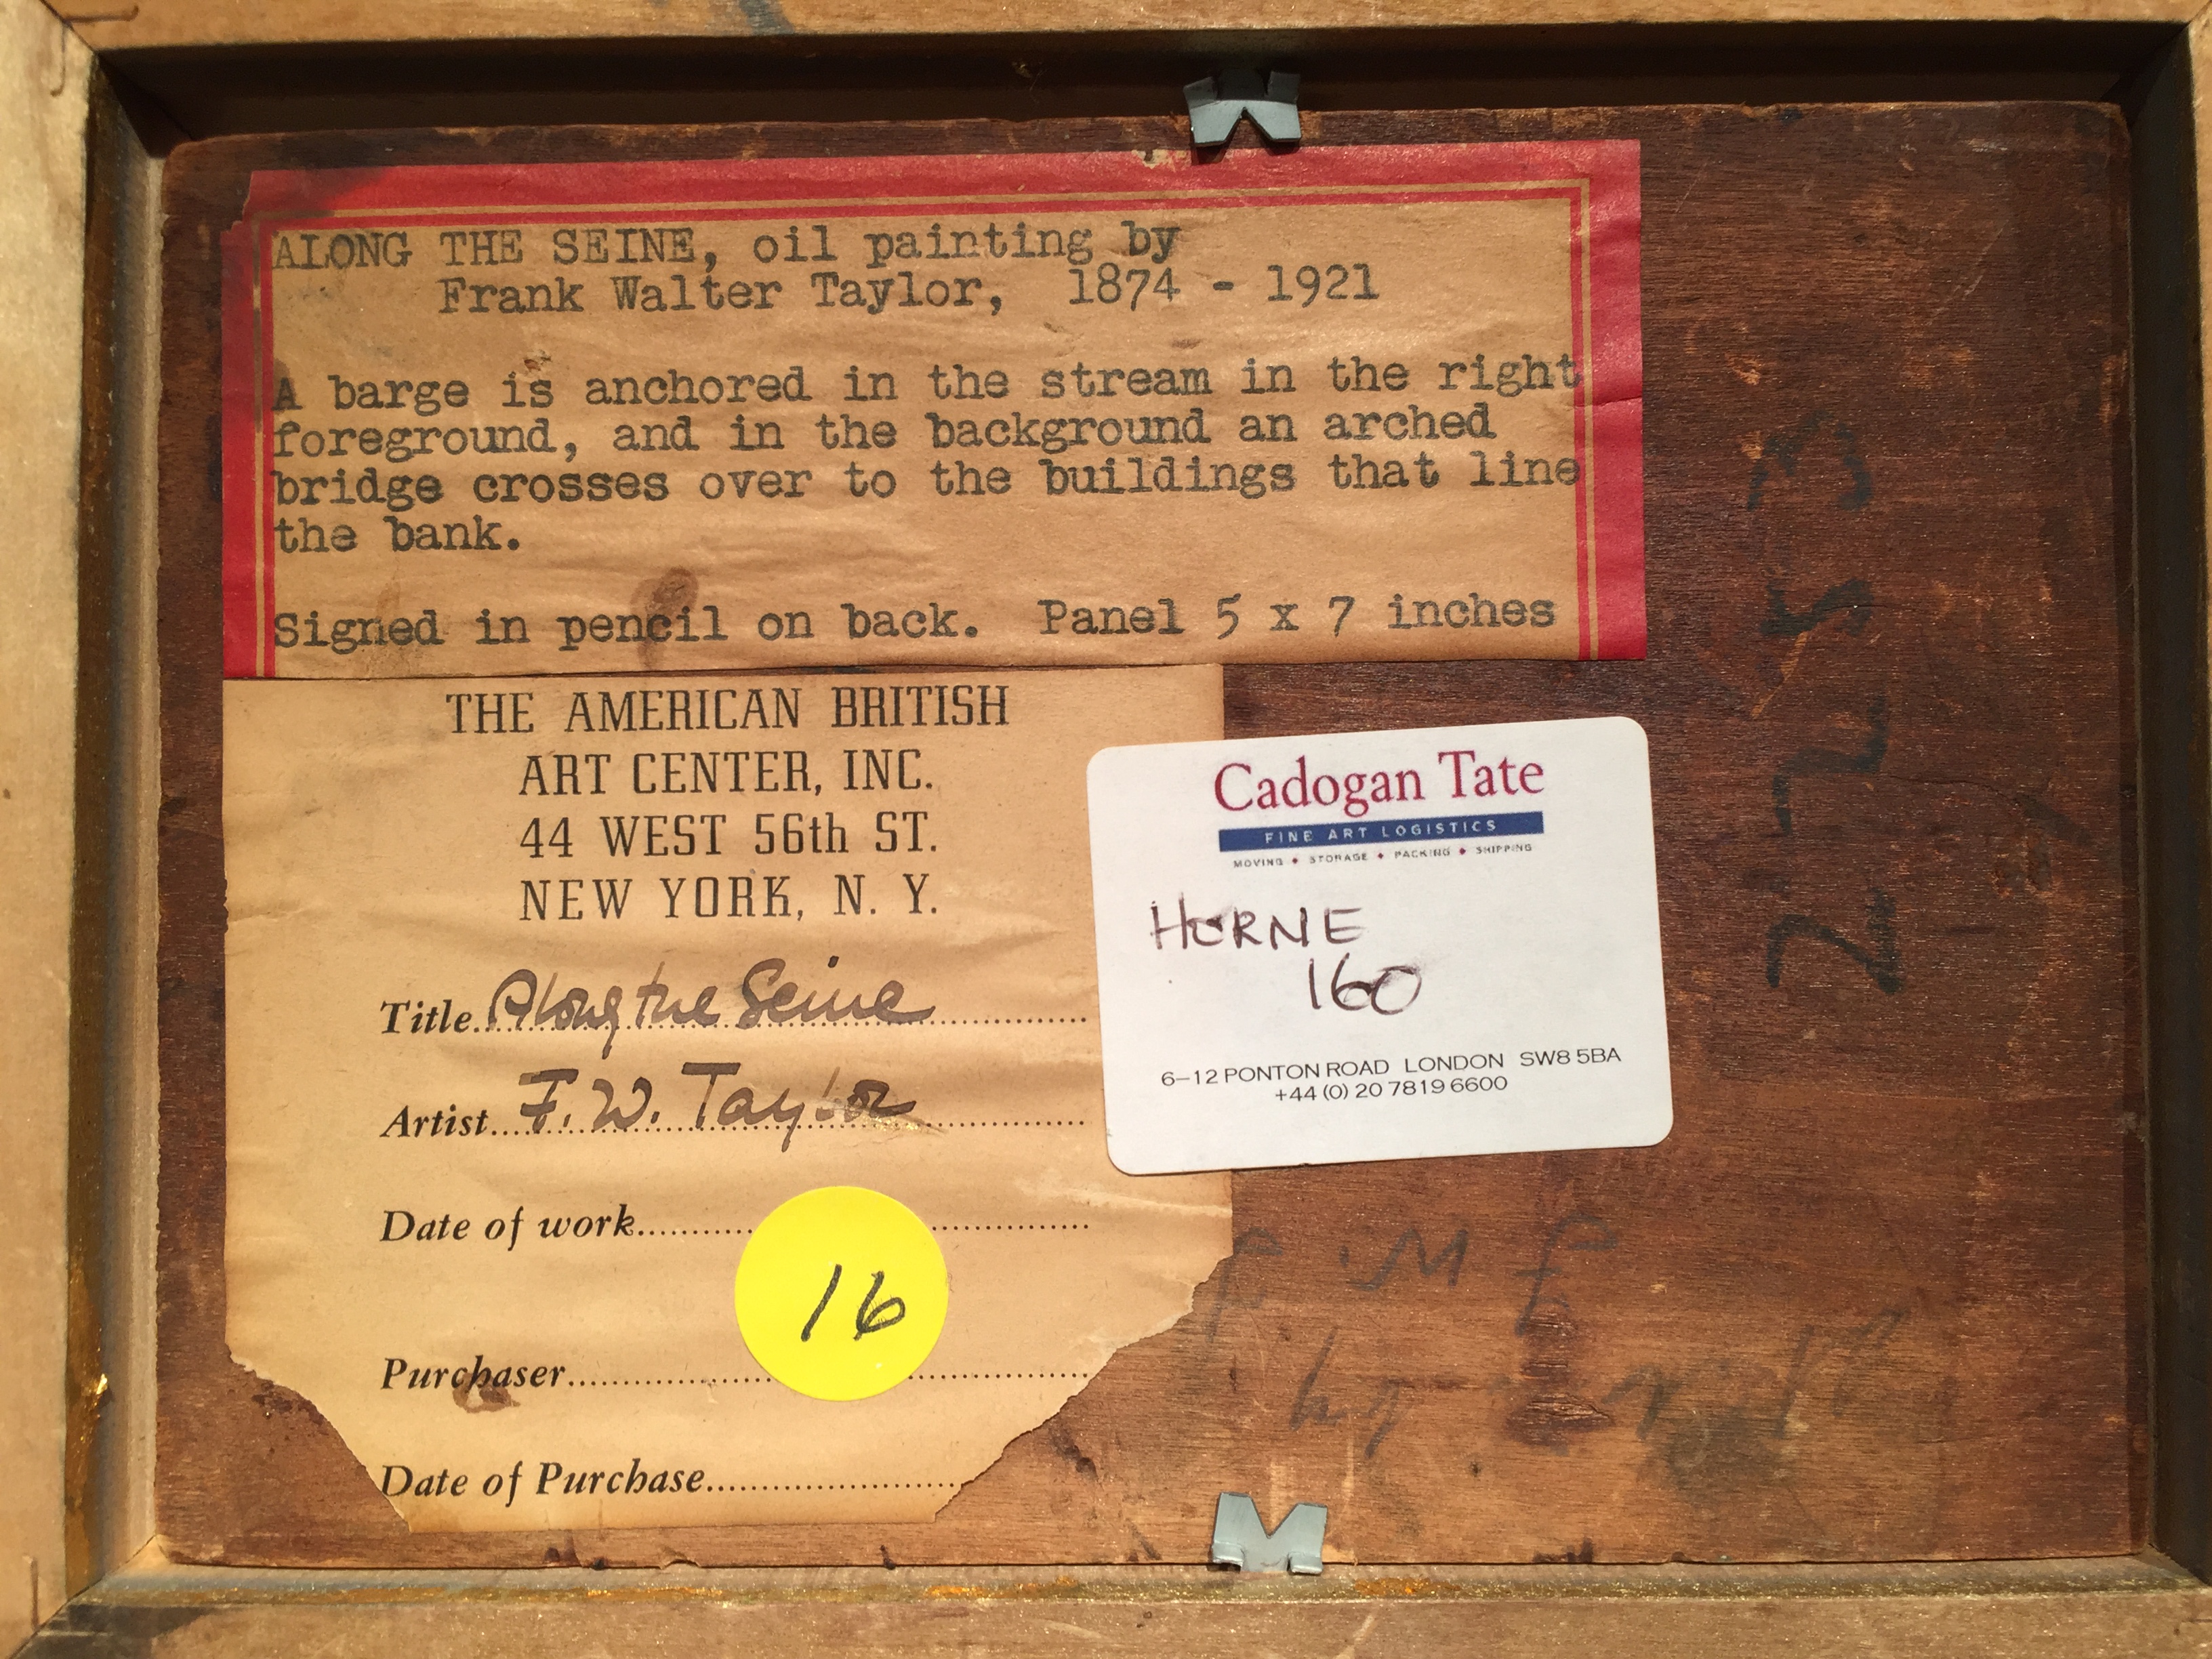 ALONG THE SEINE, oil painting by
Frank Walter Taylor, 1874 - 1921
A barge is anchored in the stream in the right
foreground, and in the background an arched
bridge crosses over to the buildings that line
the bank.
Signed in pencil on back. Panel 5 x 7 inches
THE AMERICAN BRITISH
ART CENTER, INC.
44 WEST 56th ST.
NEW YORK, N. Y.
Title Along the Seine
Artist F. W. Taylor
Date of work
16
Purchaser
Date of Purchase
Cadogan Tate
FINE ART LOGISTICS
MOVING ♦ STORAGE ♦ PACKING ♦ SHIPPING
HORNE
160
6-12 PONTON ROAD LONDON SW8 5BA
+44 (0) 20 7819 6600